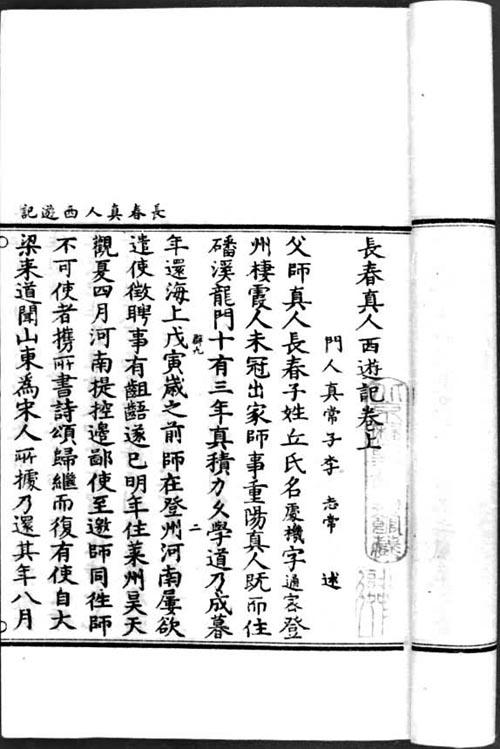 長春真人西遊記
長春真人西遊記卷上
門人真常子李 志常 述
父師真人長春子姓丘氏名處機字通密登
州棲霞人未冠出家師事重陽真人既而住
磻溪龍門十有三年真積力久學道乃成暮
年還海上戊寅歲之前師在登州河南屢欲
遣使徵聘事有齟齬遂已明年住萊州昊天
觀夏四月河南提控邊鄙使至邀師同往師
不可使者攜所書詩頌歸繼而復有使自大
梁來道聞山東為宋人所據乃還其年八月